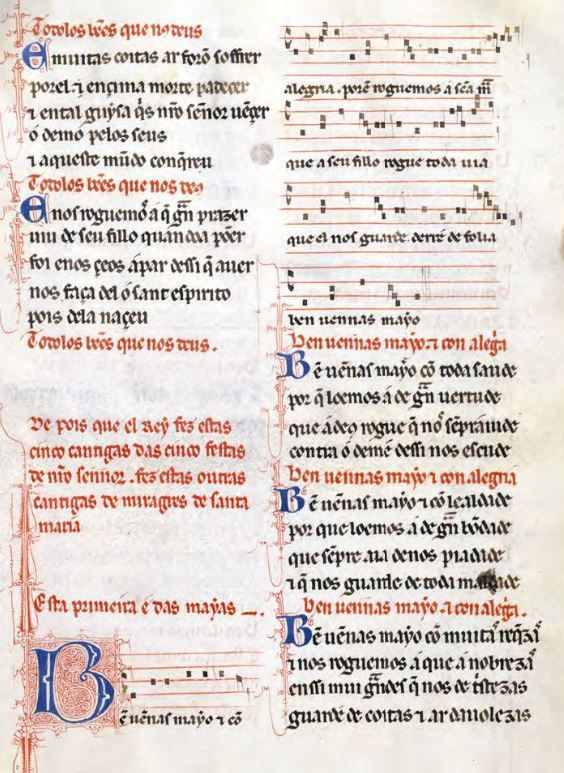 Todolos bẽes que nos deus
E muitas coitas ar forõ soffrer
porel. ⁊ encima morte padecer
⁊ en tal guysa q̇s nr̃o sẽnor uẽcer
o demo pelos seus
⁊ a queste mũdo conq̇reu
Todolos bẽes que nos deus
E nos roguemos á q̃ gñ prazer
uiu de seu fillo quand á
foi enos çeos á par dessi q̃ auer
nos faça del o sant espirito
pois dela naçeu
Todolos bẽes que nos deus.
De pois que el Rey fez estas
cinco cantigas das cinco festas
de nr̃o sennor. fez estas outras
cantigas de miragres de santa
maria
Esta primeira é das mayas
Bẽ uẽnas mayo ⁊ cõ
alegria. porẽ roguemos a sc̃a mã
que a seu fillo rogue toda uia
que el nos guarde derré de folia
ben uennas mayo
Ben uennas mayo. ⁊ con alegã
Bẽ uẽnas mayo cõ toda saude
por q̃ loemos á de gñ uertude
que á deo rogue q̃ nos sẽpr aiude
contra o deme dessi nos escude
Ben uennas mayo ⁊ con alegria
Bẽ uẽnas mayo ⁊ cõ lealdade
por que loemos á de gñ bõdade
que sẽpre aia de nos piadade
⁊ q̃ nos guarde de toda maldade
Ben uennas mayo. ⁊ con alegã.
Bẽ uẽnas mayo cõ muitas req̃zas
⁊ nos roguemos á que á nobrezas
enssi mui gñdes q̃ nos de tͥstezas
guarde de coitas ⁊ ar dauolezas